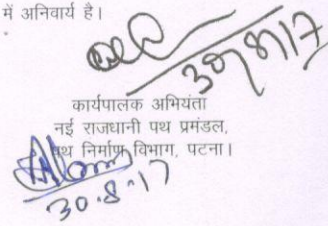 में अनिवार्य है।
30/8/17
कार्यपालक अभियंता
नई राजधानी पथ प्रमंडल,
पथ निर्माण विभाग, पटना।
30.8.17